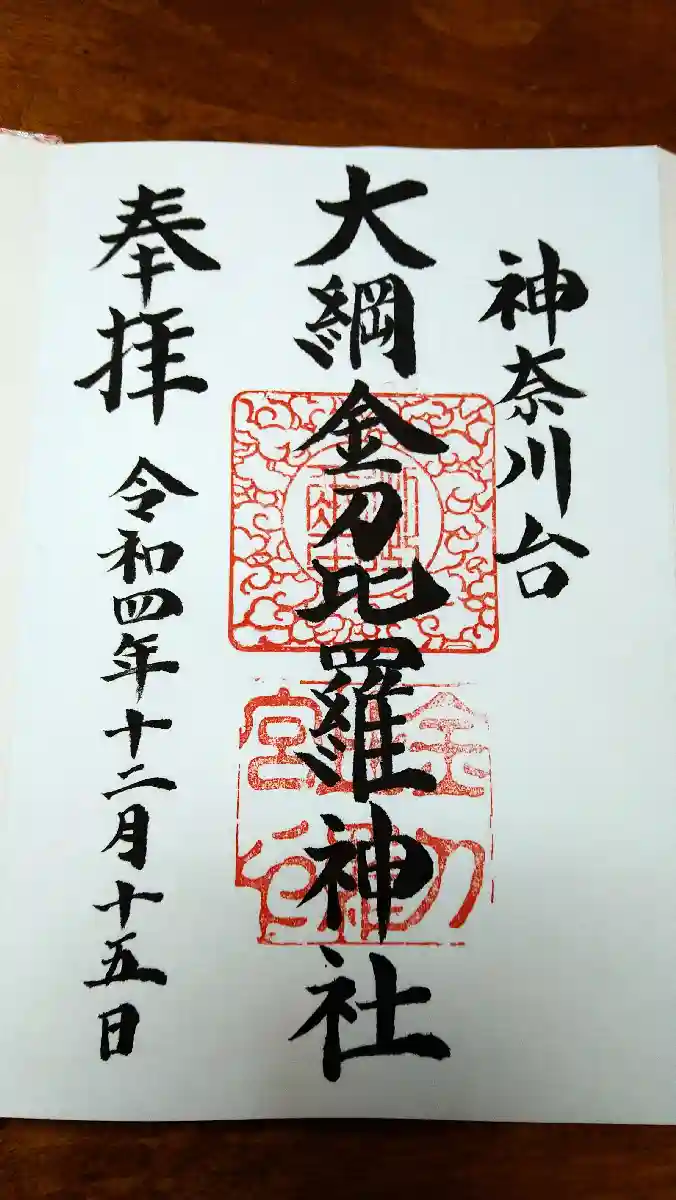 神奈川台
大綱金刀比羅神社
奉拝
令和四年十二月十五日